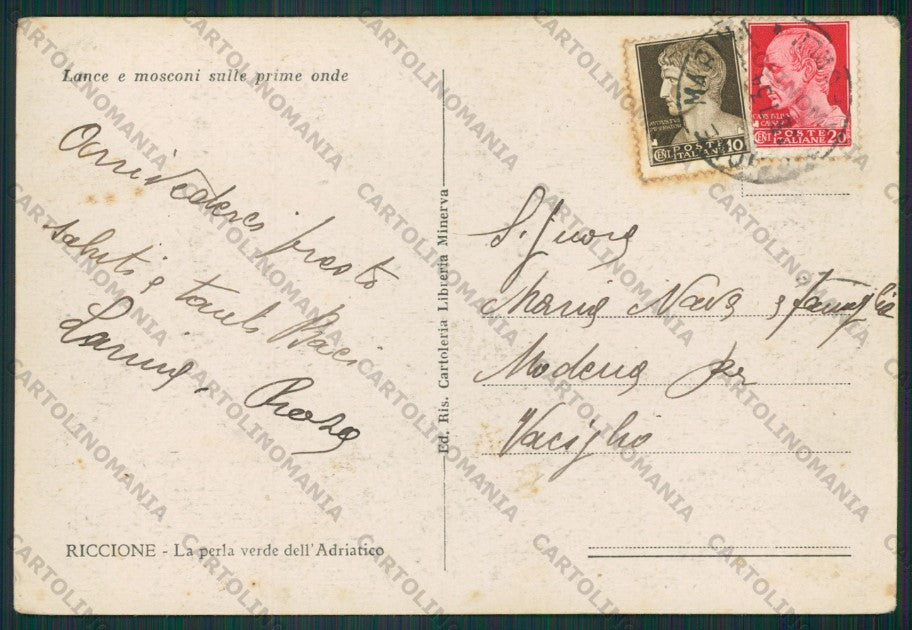 Lance e mosconi sulle prime onde
Arrivederci presto
saluti e tanti Baci
Rosa
RICCIONE - La perla verde dell'Adriatico
Ed. Ris. Cartoleria Libreria Minerva
POSTE
ITALIANE
CENT 10
POSTE
ITALIANE
CENT 2
S. Juora
Maria Nava e famiglia
Modena per
Vaciglio
CARTOLINOMANIA